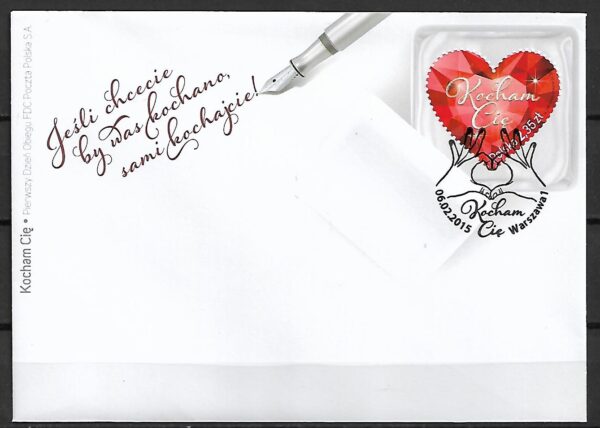 Jeśli chcecie
by was kochano,
sami kochajcie!
Kocham
Cię
Polska 2,35 zł
06.02.2015
Kocham
Cię
Warszawa 1
Kocham Cię • Pierwszy Dzień Obiegu FDC Poczta Polska S.A.